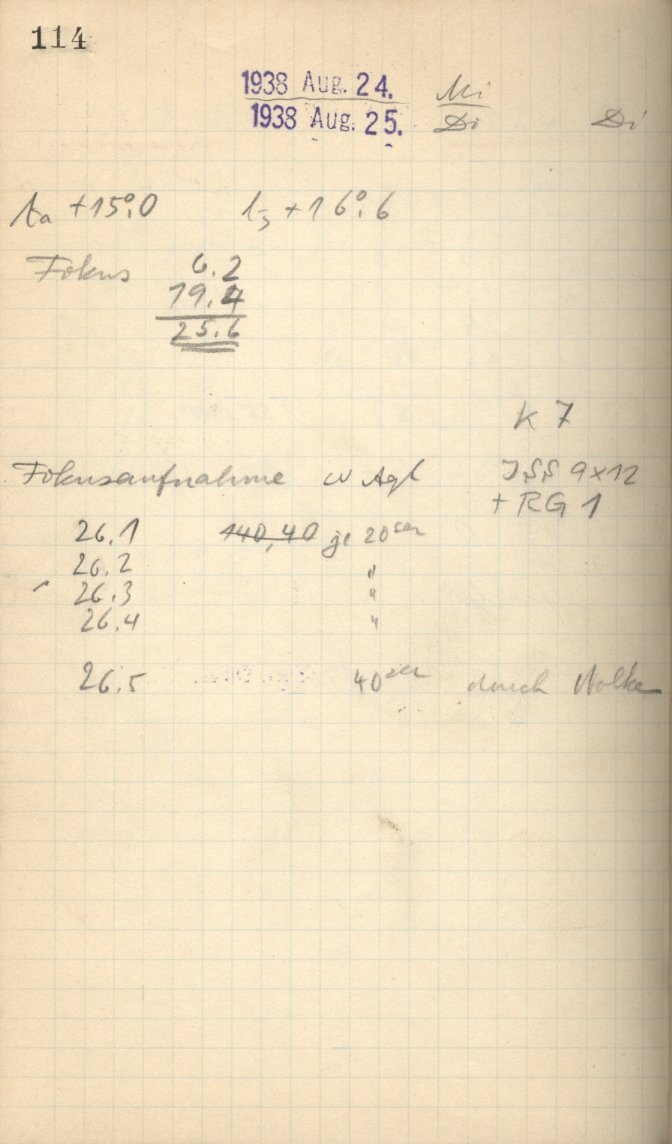 114
1938 Aug. 24. Mi
1938 Aug. 25. Do Di
ta +15°.0 t3 +16°.6
Fokus 6.2
19.4
25.6
K 7
Fokusaufnahme ω Aql ISS 9×12
+ RG 1
26.1 140,40 je 20sec
26.2 "
26.3 "
26.4 "
26.5 40sec durch Wolke